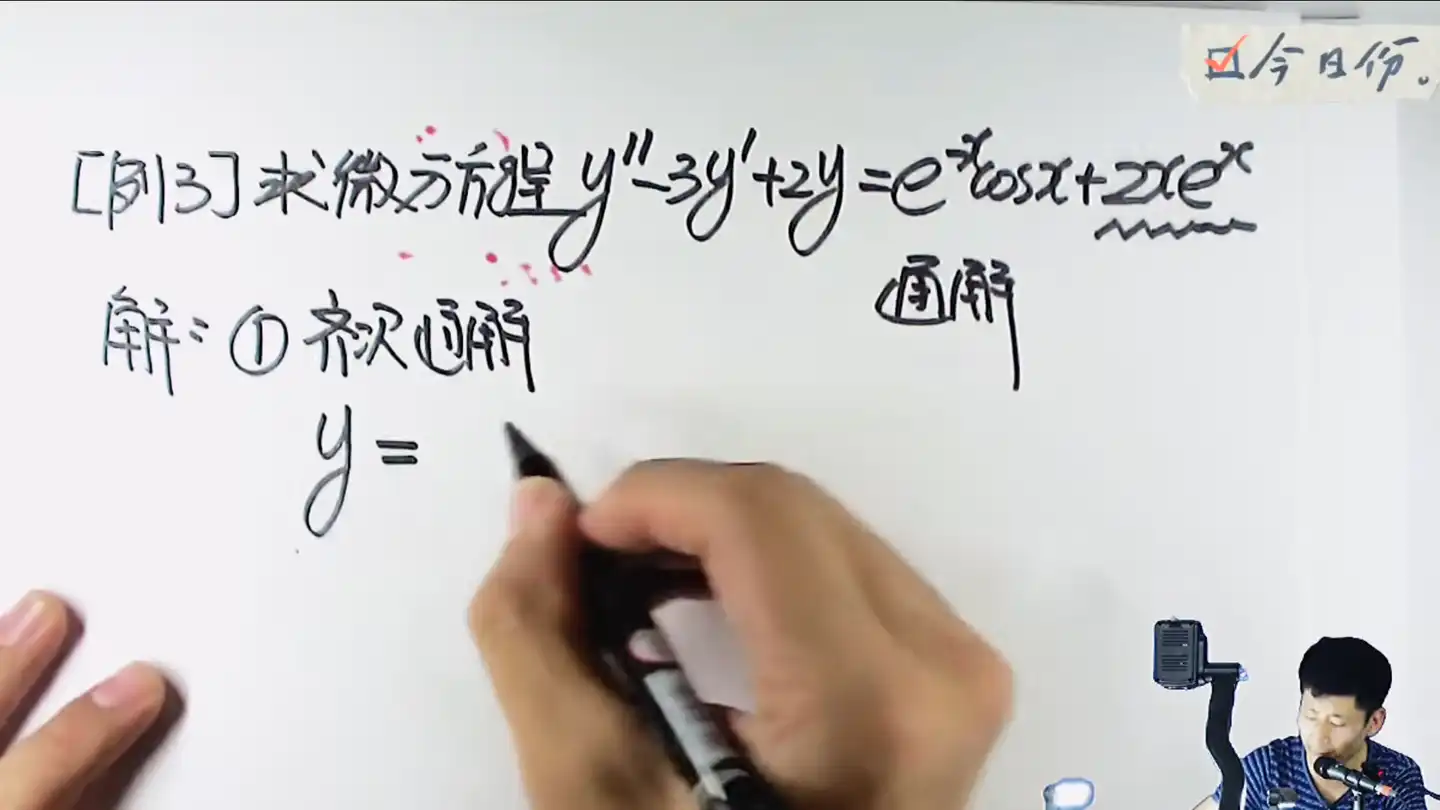 今日份。
[例13]求微分方程 y''-3y'+2y=e^{-x}cosx+2xe^x
通解
解:①齐次通解
y=